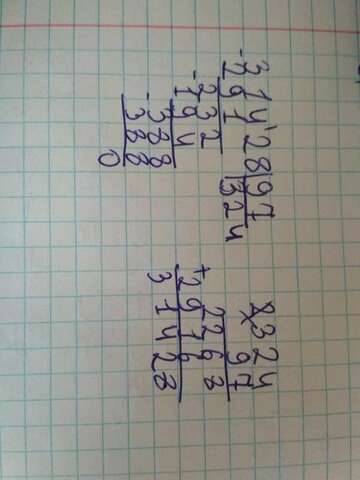 -314'28|97
291|324
-232
194
-388
388
0
×324
97
2268
+2916
31428